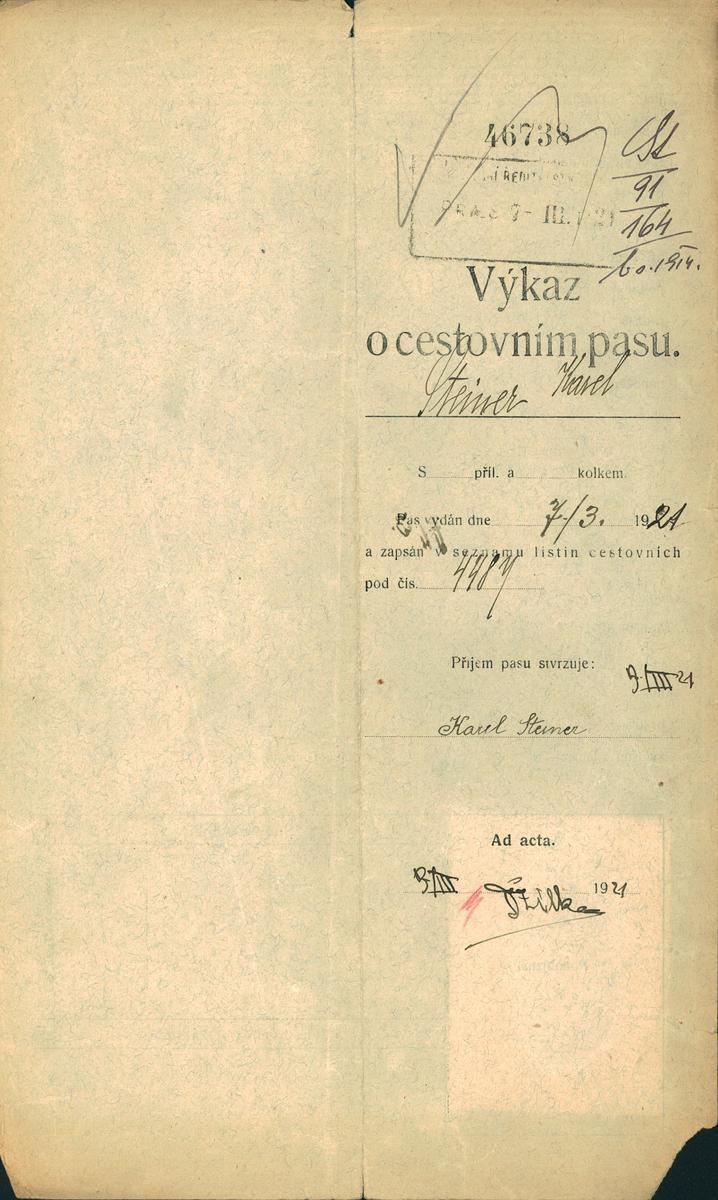 46738
7- III. 1921
St
91
164
Výkaz
o cestovním pasu.
Steiner Karel
S příl. a kolkem.
Pas vydán dne 7/3. 1921
a zapsán v seznamu listin cestovních
pod čís. 4487
Příjem pasu stvrzuje:
Karel Steiner
Ad acta.
1921